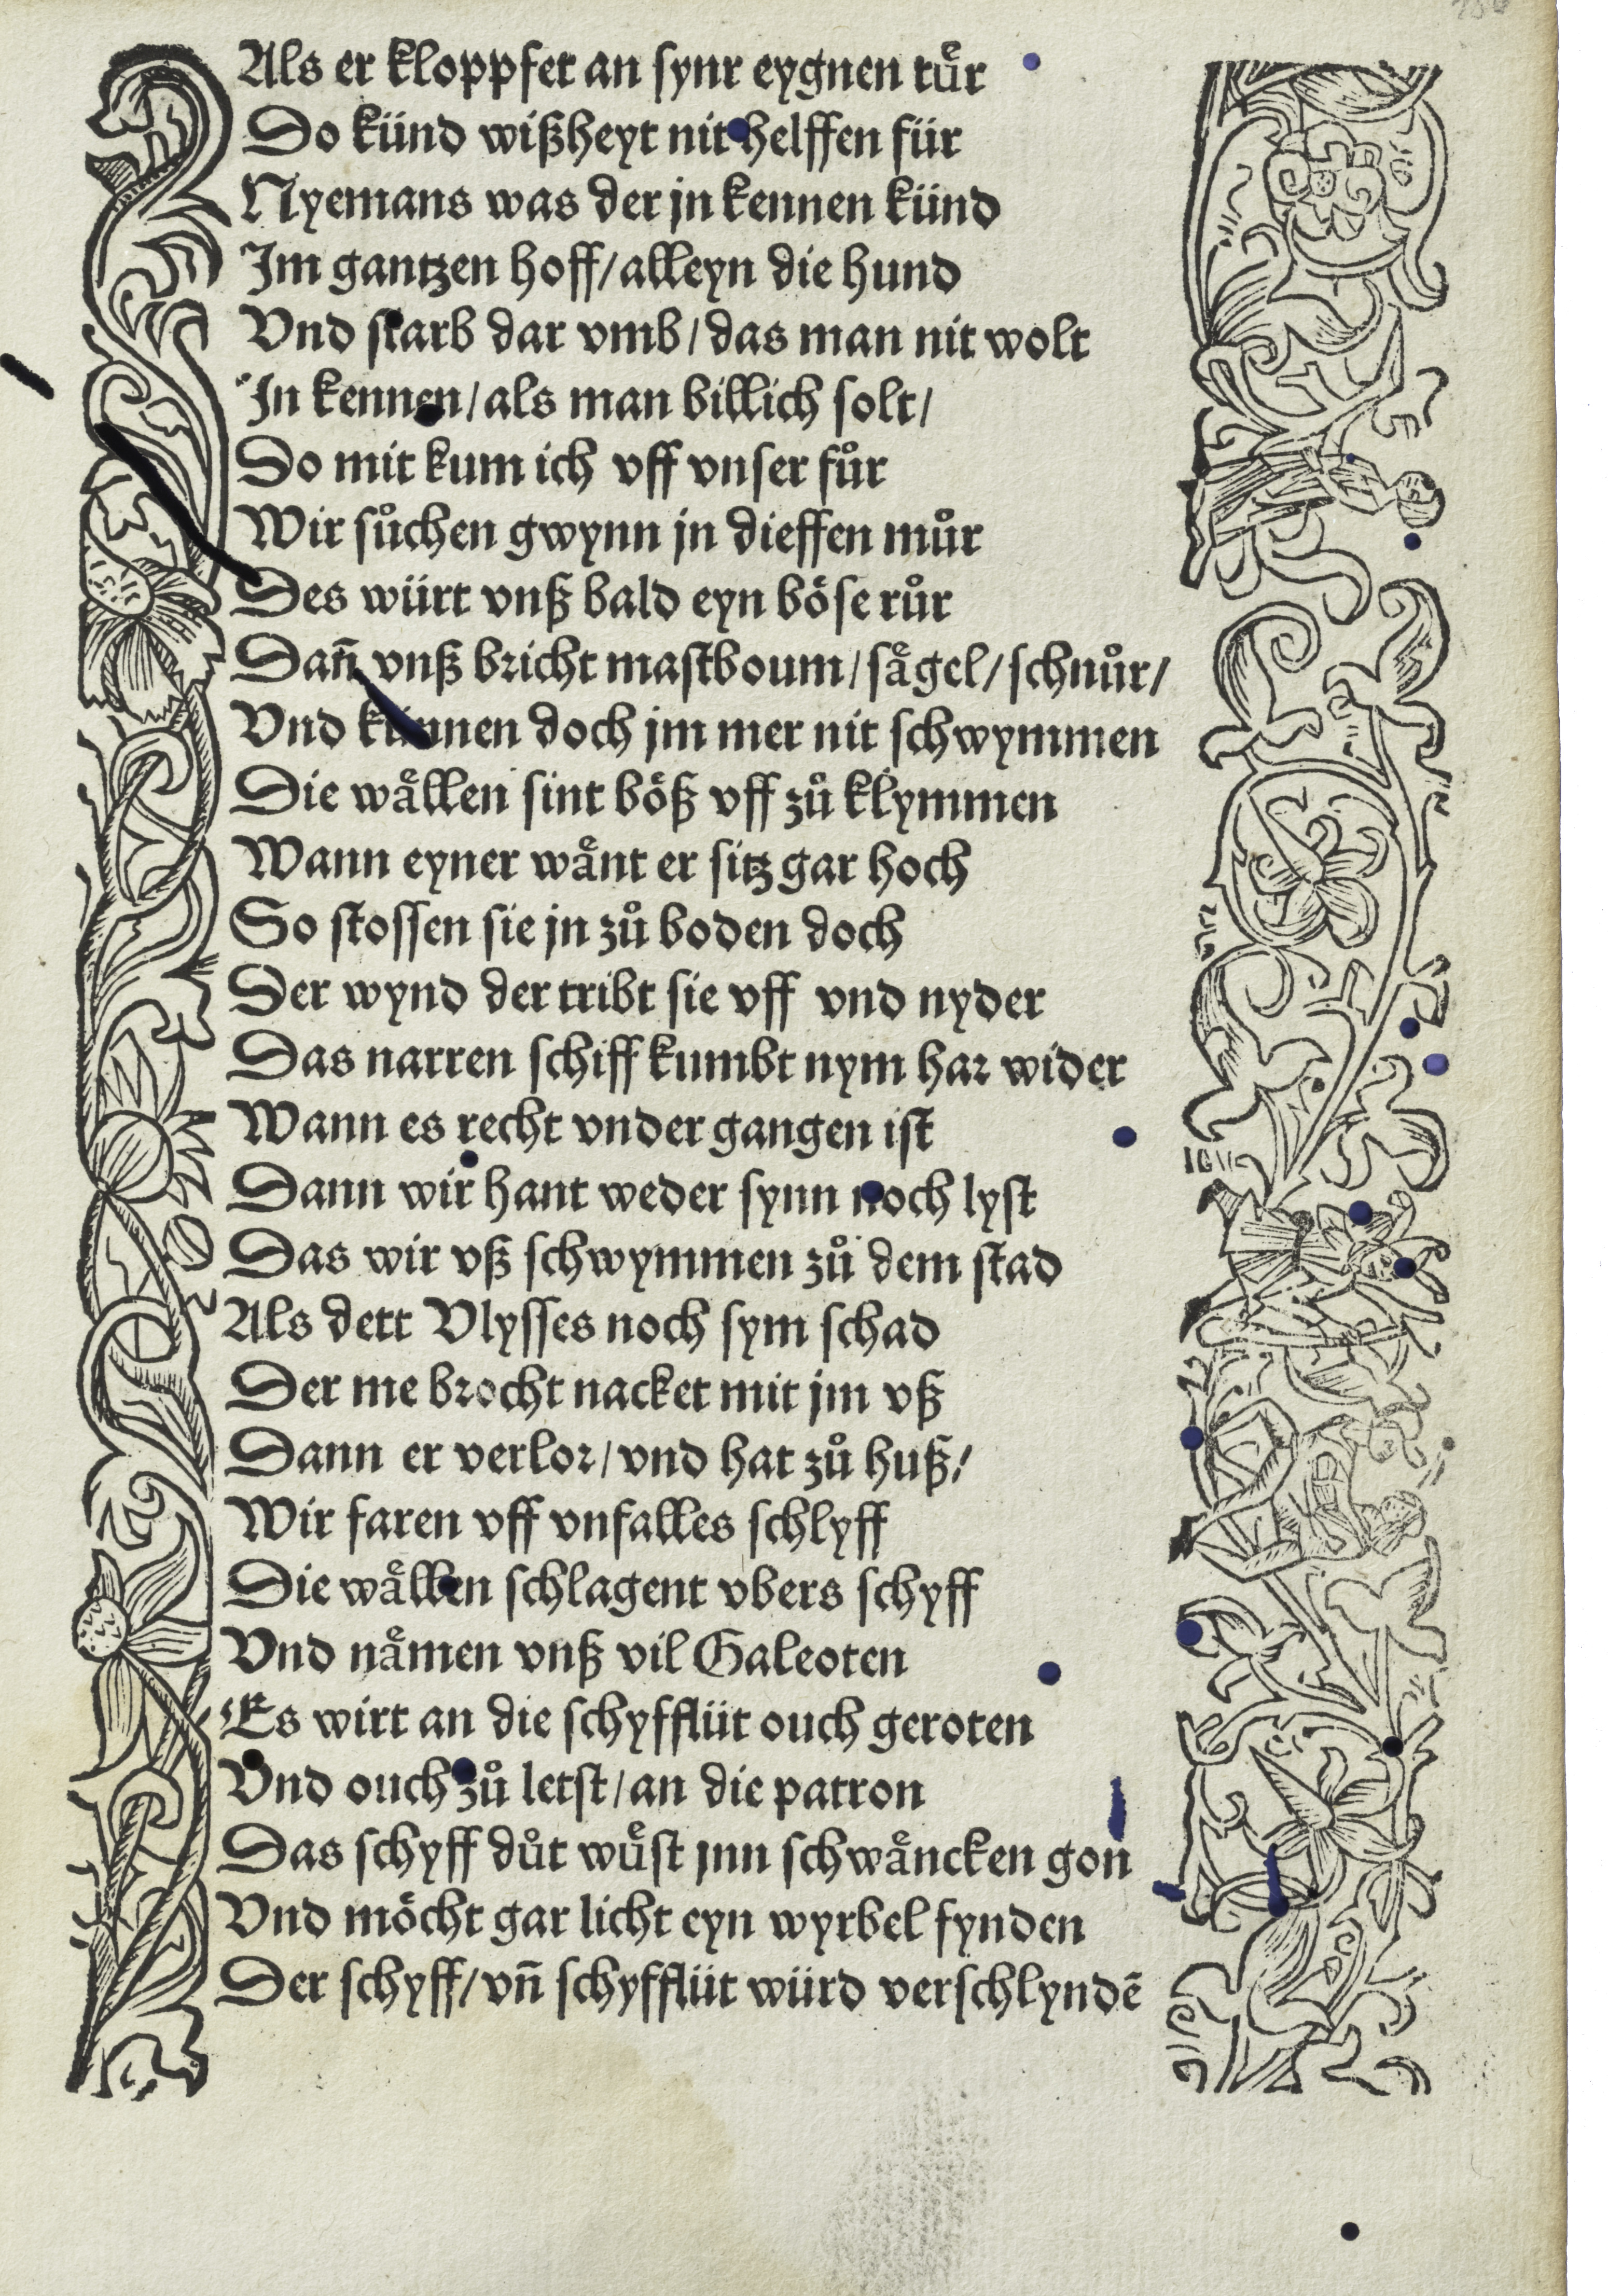 Als er kloppfet an synr eygnen tuͤr
Do künd wißheyt nit helffen für
Nyemans was der jn kennen künd
Im gantzen hoff/ alleyn die hund
Vnd starb dar vmb/ das man nit wolt
In kennen/ als man billich solt/
Do mit kum ich vff vnser fuͦr
Wir suͦchen gwynn jn dieffen muͦr
Des würt vnß bald eyn boͤse ruͦr
Dañ vnß bricht mastboum/ saͤgel/ schnuͦr/
Vnd künnen doch jm mer nit schwymmen
Die waͤllen sint boͤß vff zuͦ klymmen
Wann eyner waͤnt er sitz gar hoch
So stossen sie jn zuͦ boden doch
Der wynd der tribt sie vff vnd nyder
Das narren schiff kumbt nym har wider
Wann es recht vnder gangen ist
Dann wir hant weder synn noch lyst
Das wir vß schwymmen zuͦ dem stad
Als dett Vlysses noch sym schad
Der me brocht nacket mit jm vß
Dann er verlor/ vnd hat zuͦ huß/
Wir faren vff vnfalles schlyff
Die waͤllen schlagent vbers schyff
Vnd naͤmen vnß vil Galeoten
Es wirt an die schyfflüt ouch geroten
Vnd ouch zuͦ letst/ an die patron
Das schyff duͦt wuͤst jnn schwaͤncken gon
Vnd moͤcht gar licht eyn wyrbel fynden
Der schyff/ vñ schyfflüt würd verschlyndē